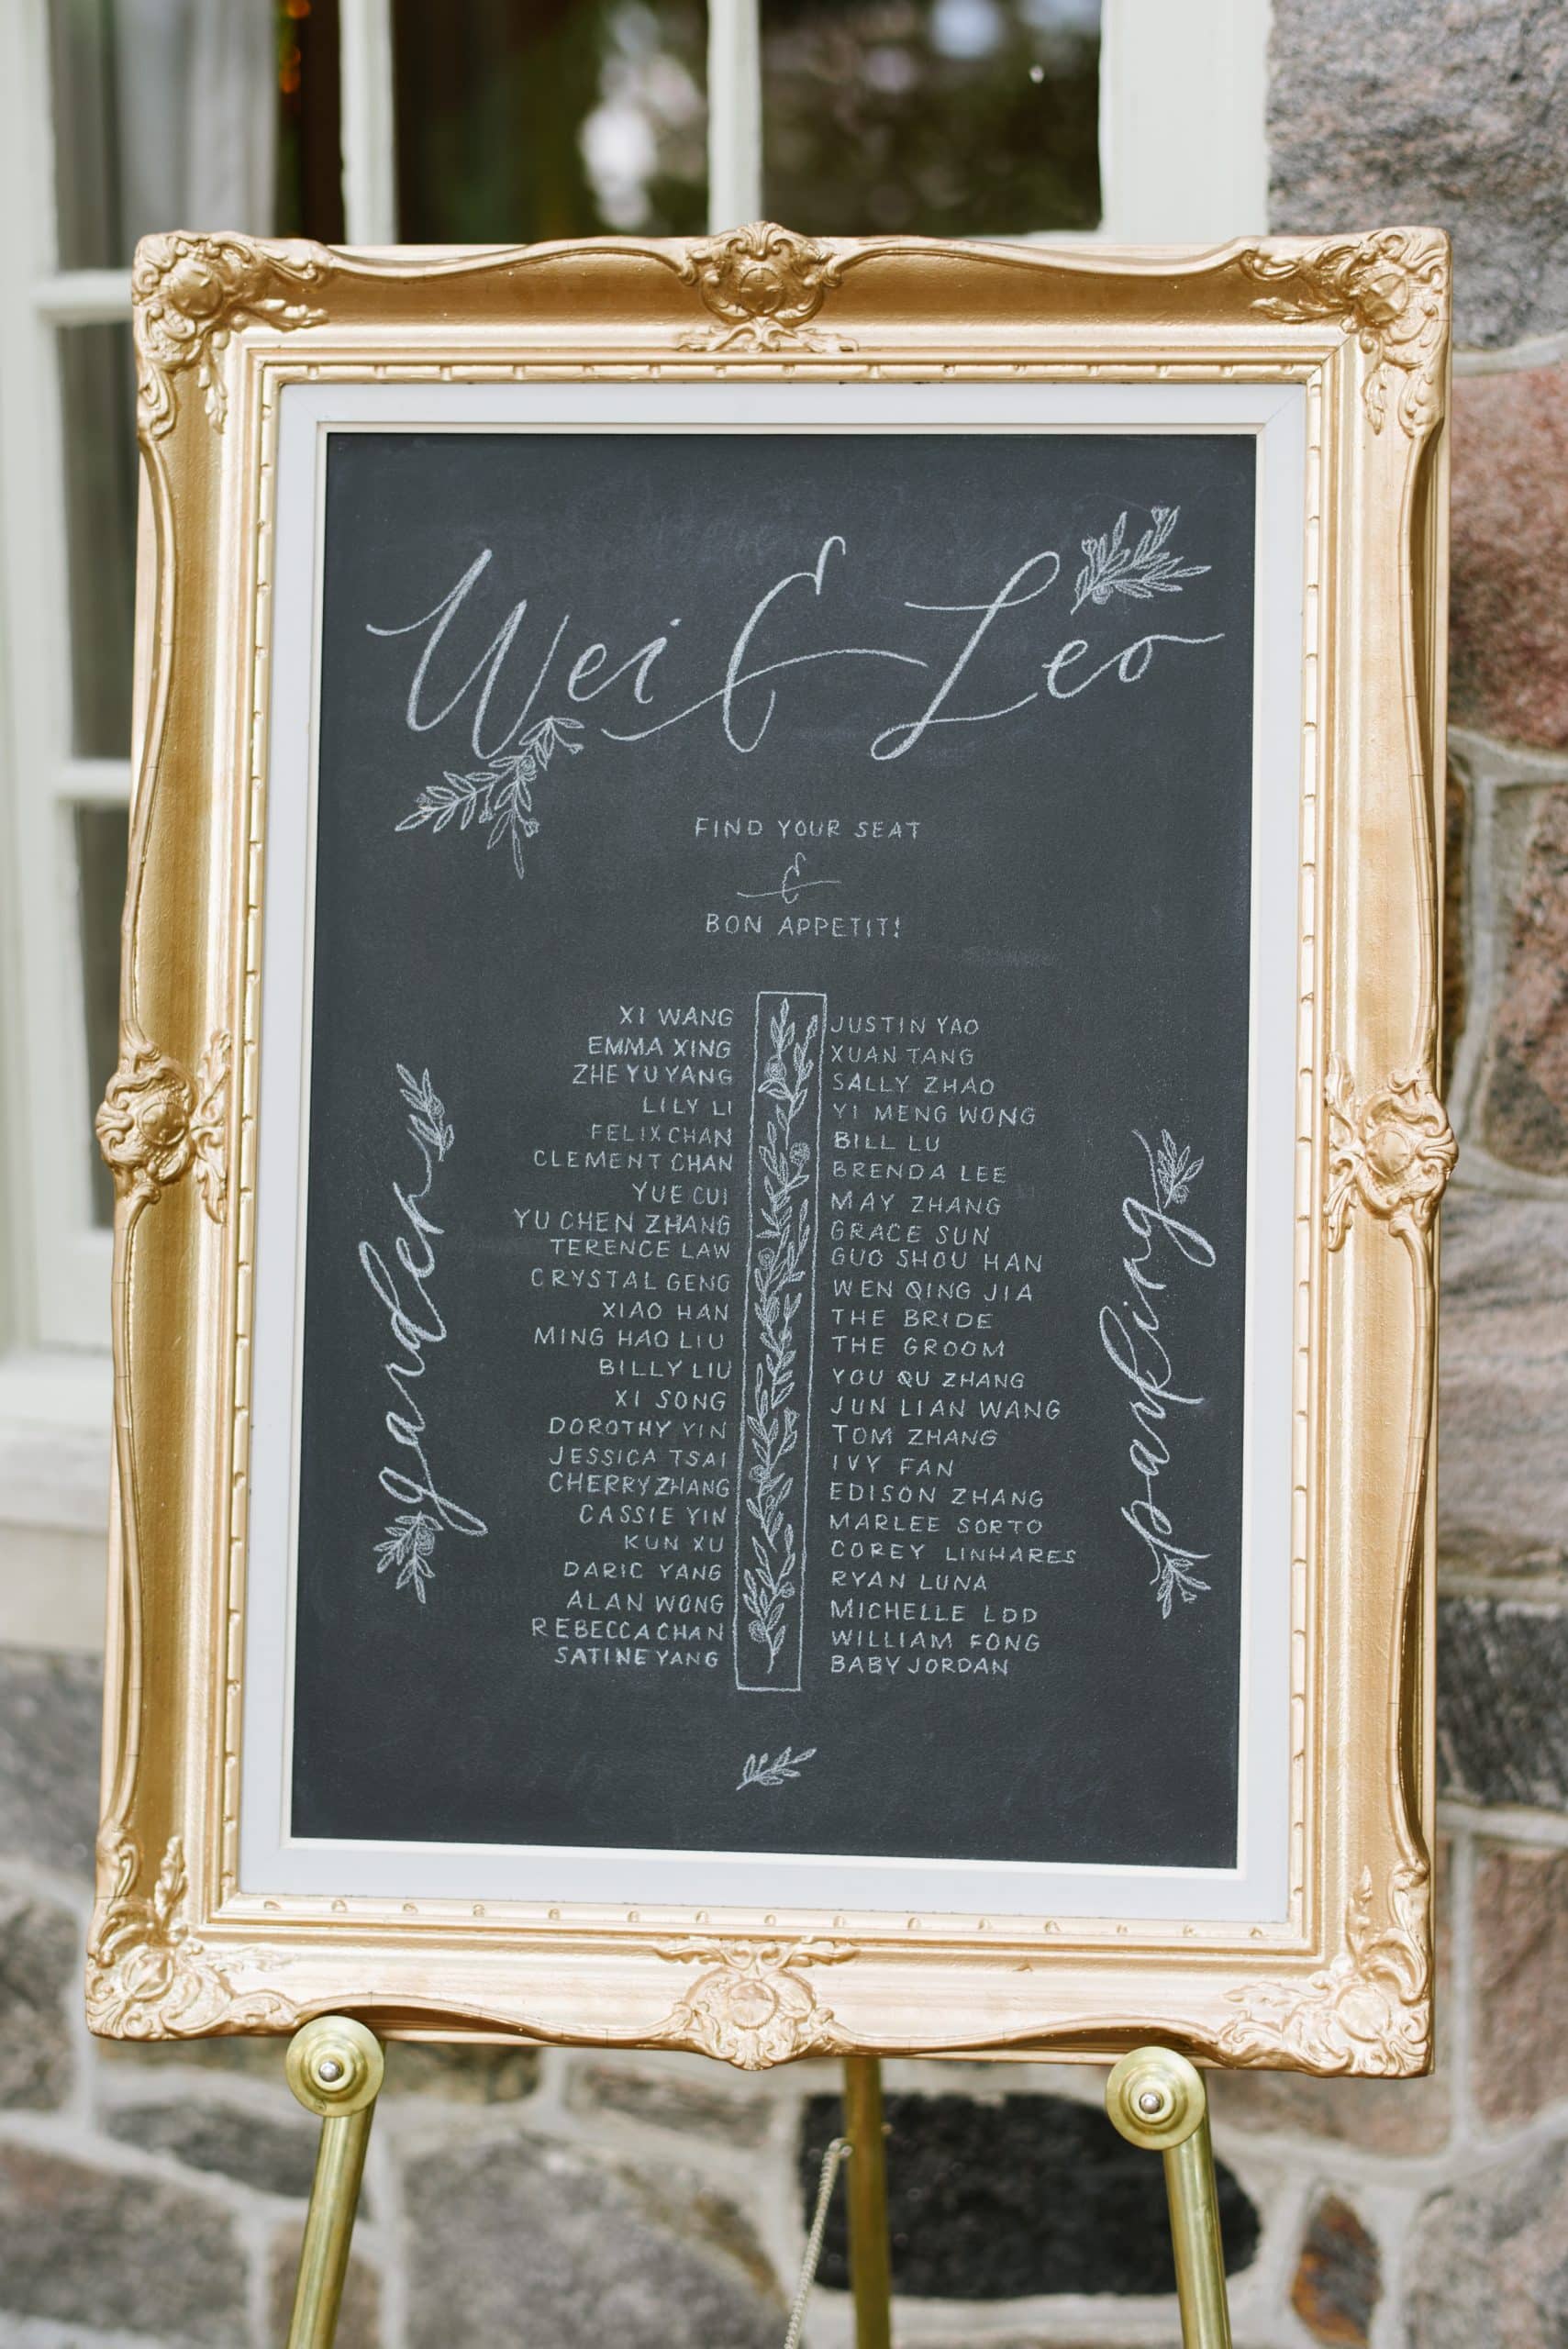 Wei & Leo
FIND YOUR SEAT
&
BON APPETIT!
garden
XI WANG
EMMA XING
ZHE YU YANG
LILY LI
FELIX CHAN
CLEMENT CHAN
YUE CUI
YU CHEN ZHANG
TERENCE LAW
CRYSTAL GENG
XIAO HAN
MING HAO LIU
BILLY LIU
XI SONG
DOROTHY YIN
JESSICA TSAI
CHERRY ZHANG
CASSIE YIN
KUN XU
DARIC YANG
ALAN WONG
REBECCA CHAN
SATINE YANG
JUSTIN YAO
XUAN TANG
SALLY ZHAO
YI MENG WONG
BILL LU
BRENDA LEE
MAY ZHANG
GRACE SUN
GUO SHOU HAN
WEN QING JIA
THE BRIDE
THE GROOM
YOU QU ZHANG
JUN LIAN WANG
TOM ZHANG
IVY FAN
EDISON ZHANG
MARLEE SORTO
COREY LINHARES
RYAN LUNA
MICHELLE LOO
WILLIAM FONG
BABY JORDAN
parking